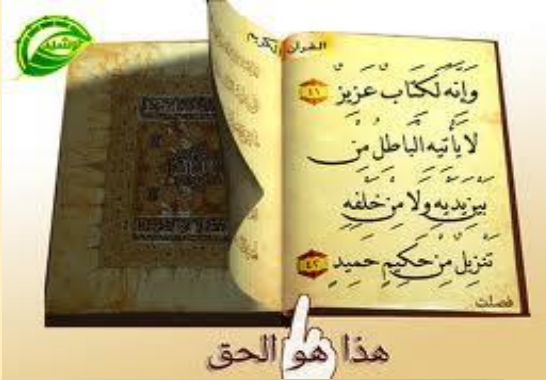 القرآن الكريم
وَإِنَّهُ لَكِتَابٌ عَزِيزٌ ٤١
لَا يَأْتِيهِ الْبَاطِلُ مِن
بَيْنِ يَدَيْهِ وَلَا مِنْ خَلْفِهِ
تَنزِيلٌ مِّنْ حَكِيمٍ حَمِيدٍ ٤٢
فصلت
هذا هو الحق